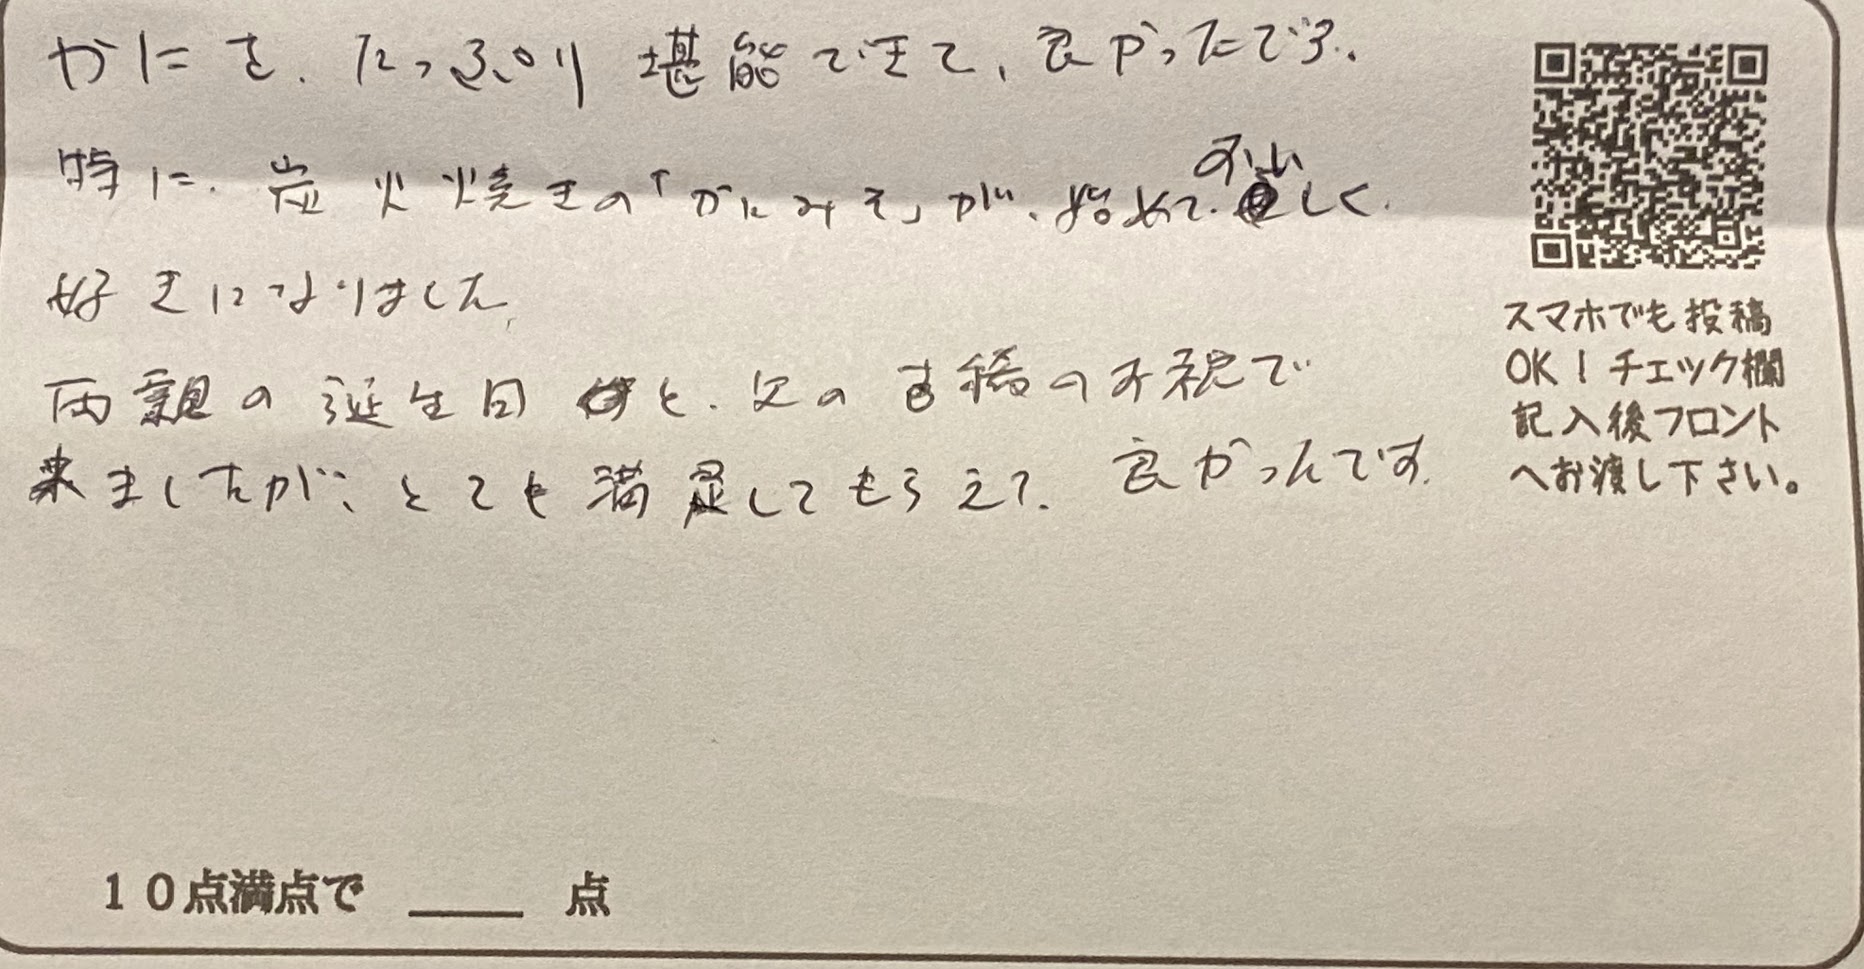 かにを、たっぷり堪能できて、良かったです。
特に、炭火焼きの「かにみそ」が、始めて、おいしく
好きになりました。
両親の誕生日と、父の古稀のお祝で
来ましたが、とても満足してもらえて、良かったです。
スマホでも投稿
OK！チェック欄
記入後フロント
へお渡し下さい。
10点満点で ____ 点